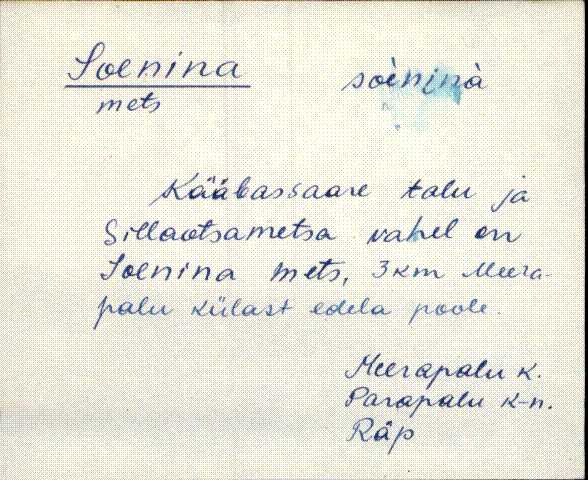 Soenina soèninà
mets
Kääbassaare talu ja
Sillaotsametsa vahel on
Soenina mets, 3 km Meera-
palu külast edela poole.
Meerapalu k.
Parapalu k-n.
Räp